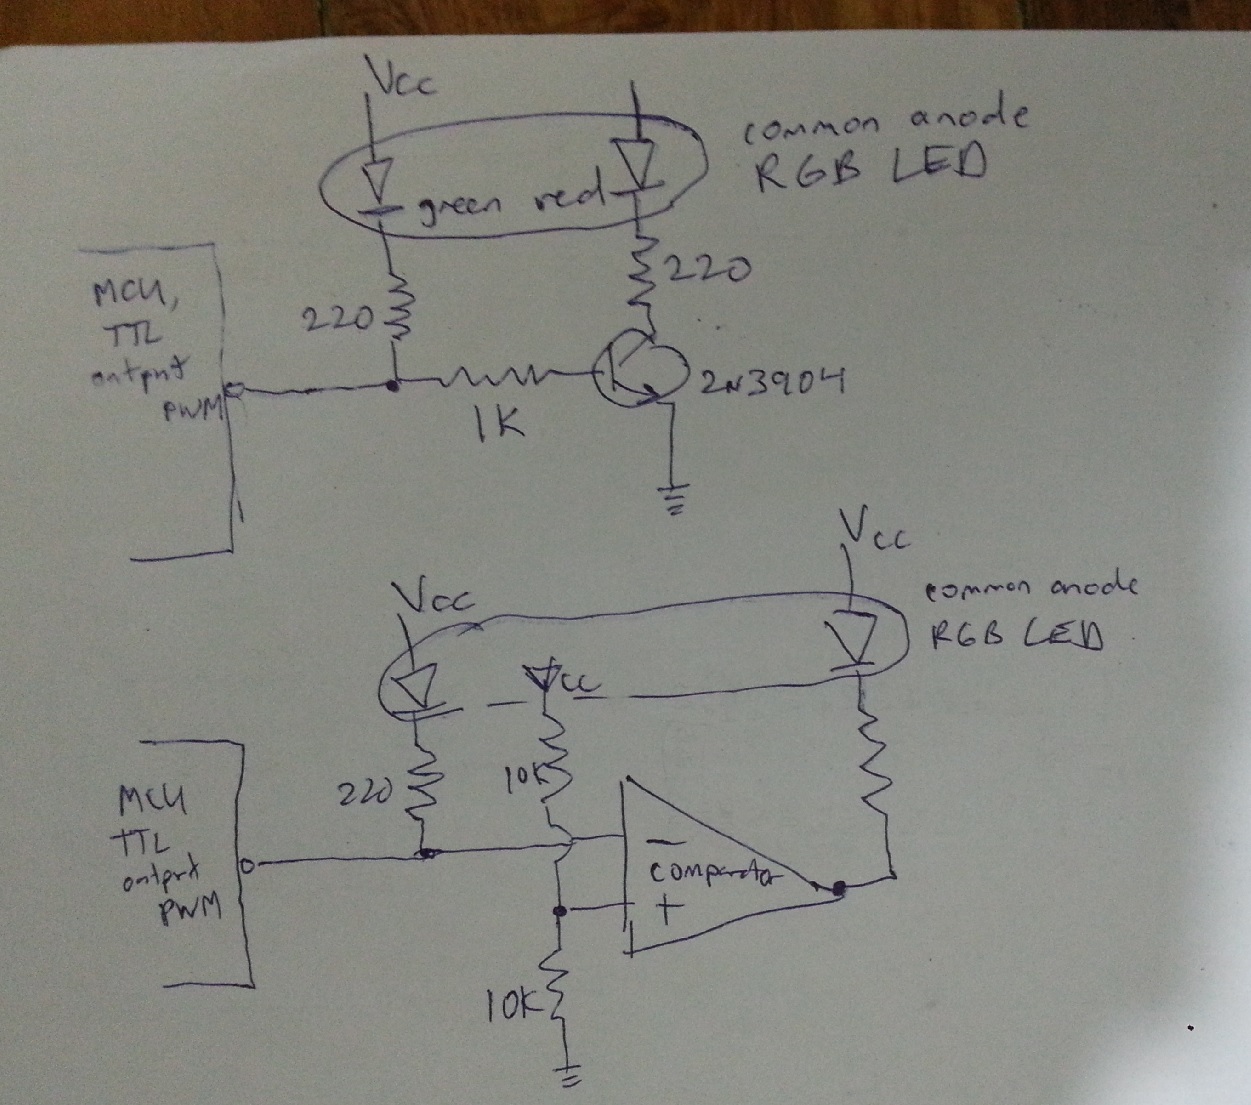 Vcc
common anode
RGB LED
green red
220
220
MCU,
TTL
output
PWM
1K
2N3904
Vcc
Vcc
common anode
RGB LED
Vcc
220
10K
MCU
TTL
output
PWM
-
comparator
+
10K